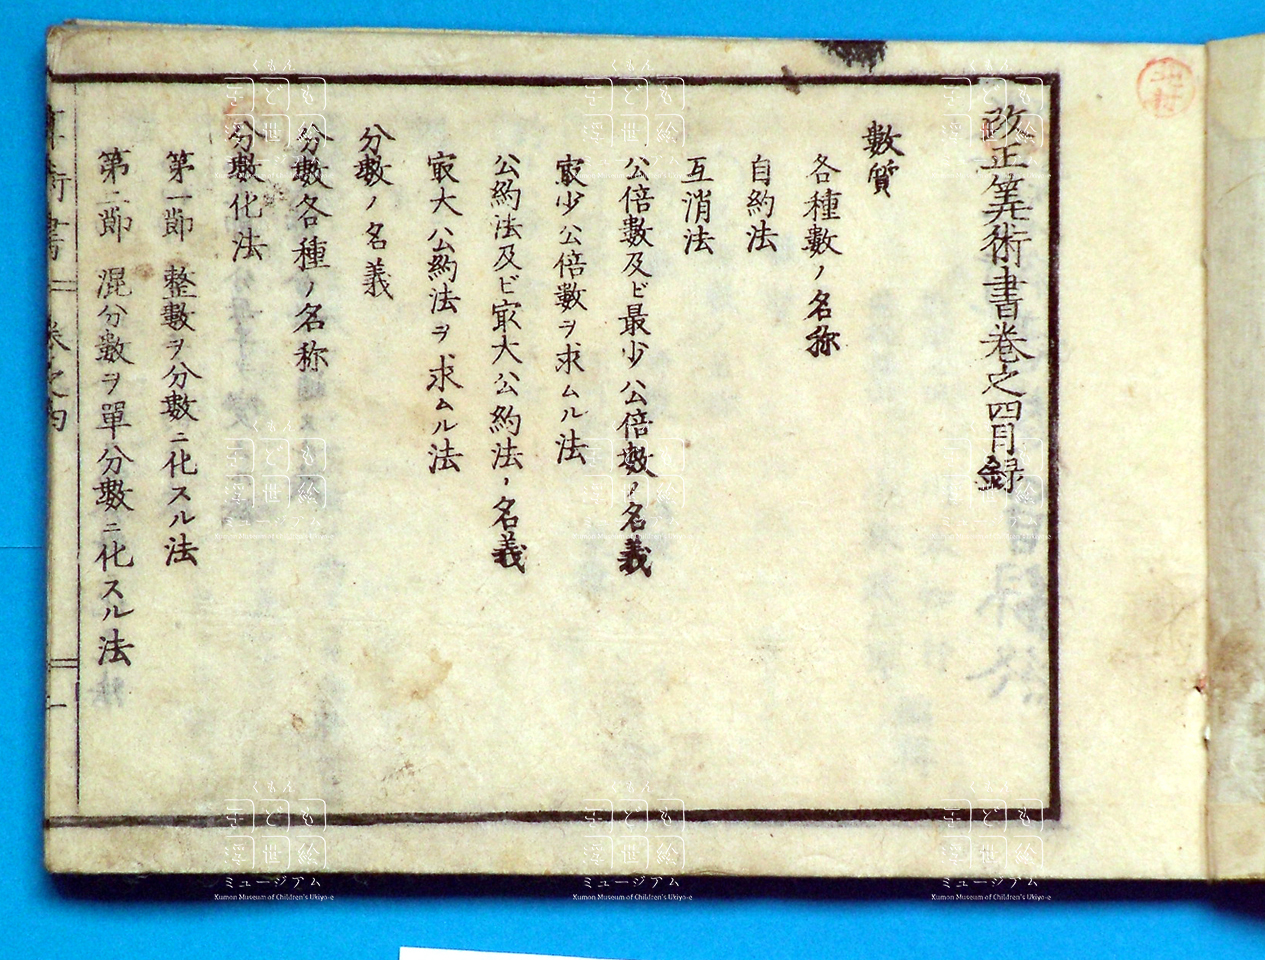 改正筭術書巻之四目録
數質
各種數ノ名称
自約法
互消法
公倍數及ビ最少公倍數ノ名義
㝡少公倍數ヲ求ムル法
公約法及ビ㝡大公約法ノ名義
㝡大公約法ヲ求ムル法
分數ノ名義
分數各種ノ名称
分數化法
第一節 整數ヲ分數ニ化スル法
第二節 混分數ヲ單分數ニ化スル法
術書 巻之四
くもん
子ども
浮世絵
ミュージアム
Kumon Museum of Children's Ukiyo-e
くもん
子ども
浮世絵
ミュージアム
Kumon Museum of Children's Ukiyo-e
くもん
子ども
浮世絵
ミュージアム
Kumon Museum of Children's Ukiyo-e